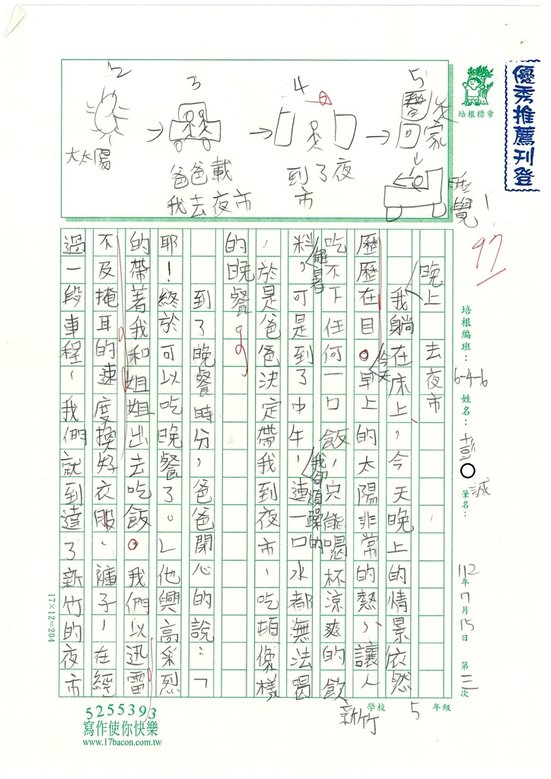 優秀推薦刊登
培根標章
2
大太陽
3
爸爸載
我去夜市
4
到了夜
市
5
回家
睡覺
97
培根編班：6-4-6 姓名：彭○誠 筆名：
112年7月15日 第三次
學校 新竹 5 年級
晚上去夜市
我躺在床上，今天晚上的情景依然
歷歷在目。今天早上的太陽非常的熱，讓人
吃不下任何一口飯，只能喝杯涼爽的飲
料解暑，可是到了中午，我口乾舌燥的連一口水都無法喝
，於是爸爸決定帶我到夜市，吃頓像樣
的晚餐。
到了晚餐時分，爸爸開心的說：「
耶！終於可以吃晚餐了。」他興高采烈
的帶著我和姐姐出去吃飯。我們以迅雷
不及掩耳的速度換好衣服、褲子，在經
過一段車程，我們就到達了新竹的夜市
17×12=204
5255393
寫作使你快樂
www.17bacon.com.tw